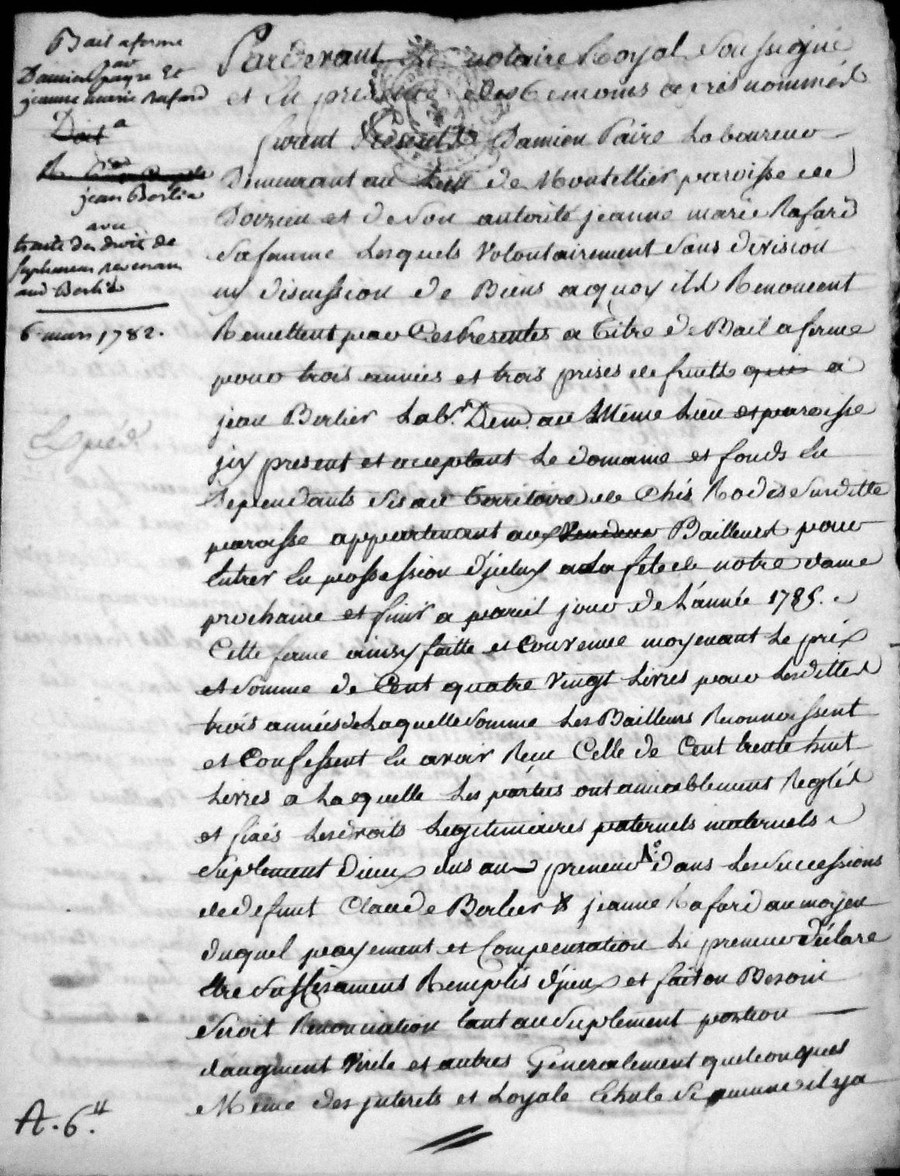 Bail a ferme
par
Damien payre et
jeanne marie Rafard
Doit
a
jean Berlie
avec
traité des droit de
suplement revenant
aud Berlie
6 mars 1782.
Expédié
Pardevant Le notaire Royal Soussigné
et En presence des temoins aprés nommés
furent Presents Damien Paire Laboureur
Demeurant au Lieu de Montellier paroisse de
Doizieu et de Son autorité jeanne marie Rafard
Safamme Lesquels volontairement Sans division
ny discussion de Biens aquoy ils Renoncent
Remettent par Ces Presentes a titre de Bail a ferme
pour trois années et trois prises de fruits a
jean Berlier Labr. Dem. au Même Lieu et paroisse
jcy present et acceptant Le domaine et fonds En
Dependants Sis au territoire de Chés Rodes Susditte
paroisse appartenant aux Bailleurs pour
Entrer En possession d'jceux a La fete de notre dame
prochaine et finir a pareil jour de L'année 1785.
Cette ferme ainsy faitte et Convenue moyenant Le prix
et Somme de Cent quatre vingt Livres pour Lesdittes
trois années de Laquelle Somme Les Bailleurs Reconnoissent
et Confessent En avoir Reçu Celle de Cent trente huit
Livres a Laquelle Les parties ont amiablement Reglés
et fixés Les droits Legitimaires paternels maternels
Suplement D'iceux dus au preneur dans Les Successions
de defunt Claude Berlier & jeanne Rafard au moyen
duquel payement et Compensation Le preneur déclare
Etre Suffisament Remplis d'jceux et fait au Besoin
Renonciation tant au Suplement portion
daugment virile et autres Generalement quelconques
Meme des jnterets et Loyale il y a
A. 6.